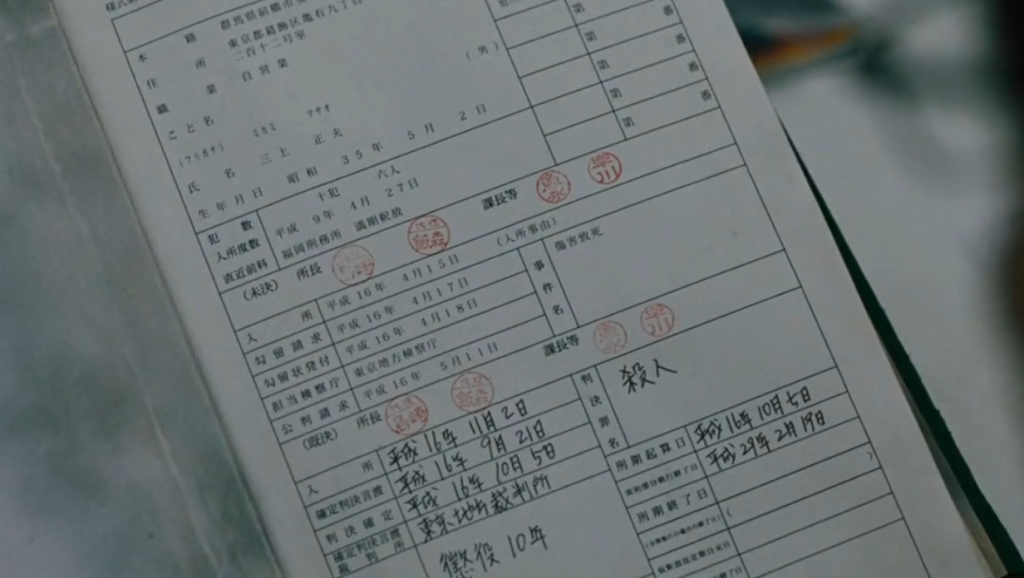 本籍 群馬県前橋市
住所 東京都葛飾区亀有九丁目
二百十二号室
職業 自営業
こと名 (男)
(フリガナ) ミカミ マサオ
氏名 三上 正夫
生年月日 昭和 35年 5月 2日
第 番
第 番
第 番
第 番
第 番
犯数 十犯
入所度数 六入
平成 9年 4月 27日
直近前科 福岡刑務所 満期釈放
(未決) 所長 課長等
入所 平成 16年 4月15日 (入所事由)
勾留請求 平成 16年 4月17日
勾留状発付 平成 16年 4月18日
担当検察庁 東京地方検察庁
公判請求 平成 16年 5月11日
事件名 傷害致死
(既決) 所長 課長等
入所 平成 16年 11月 2日
確定判決言渡 平成 16年 9月 21日
判決確定 平成 16年 10月 5日
確定判決言渡裁判所 東京地方裁判所
懲役 10年
判決罪名 殺人
刑期起算日 平成 16年 10月 5日
平成 29年 2月 19日
刑期終了日